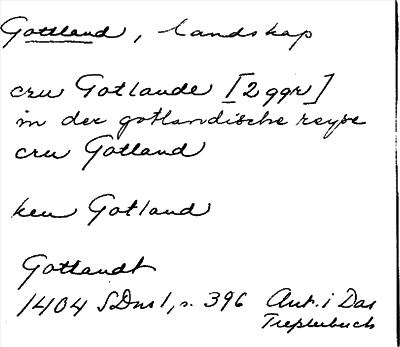 Gottland, landskap
czu Gotlande [2 ggr]
in der gotlandische reyse
czu Gotland
ken Gotland
Gottlandt
1404 SDns 1, s. 396 Ant. i Das
Tresslerbuch